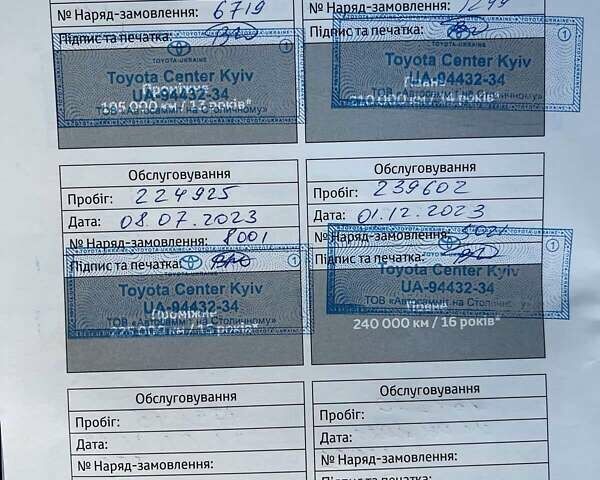 № Наряд-замовлення: 6719
Підпис та печатка:
TOYOTA-UKRAINE
Toyota Center Kyiv
UA-94432-34
ТОВ «Автосаміт на Столичному»
105 000 км /
№ Наряд-замовлення:
Підпис та печатка:
TOYOTA-UKRAINE
Toyota Center Kyiv
UA-94432-34
ТОВ «Автосаміт на Столичному»
Обслуговування
Пробіг: 224925
Дата: 08.07.2023
№ Наряд-замовлення: 8001
Підпис та печатка:
Toyota Center Kyiv
UA-94432-34
ТОВ «Автосаміт на Столичному»
Обслуговування
Пробіг: 239602
Дата: 01.12.2023
№ Наряд-замовлення:
Підпис та печатка:
Toyota Center Kyiv
UA-94432-34
ТОВ «Автосаміт на Столичному»
240 000 км / 16 років*
Обслуговування
Пробіг:
Дата:
№ Наряд-замовлення:
Обслуговування
Пробіг:
Дата:
№ Наряд-замовлення:
Підпис та печатка: